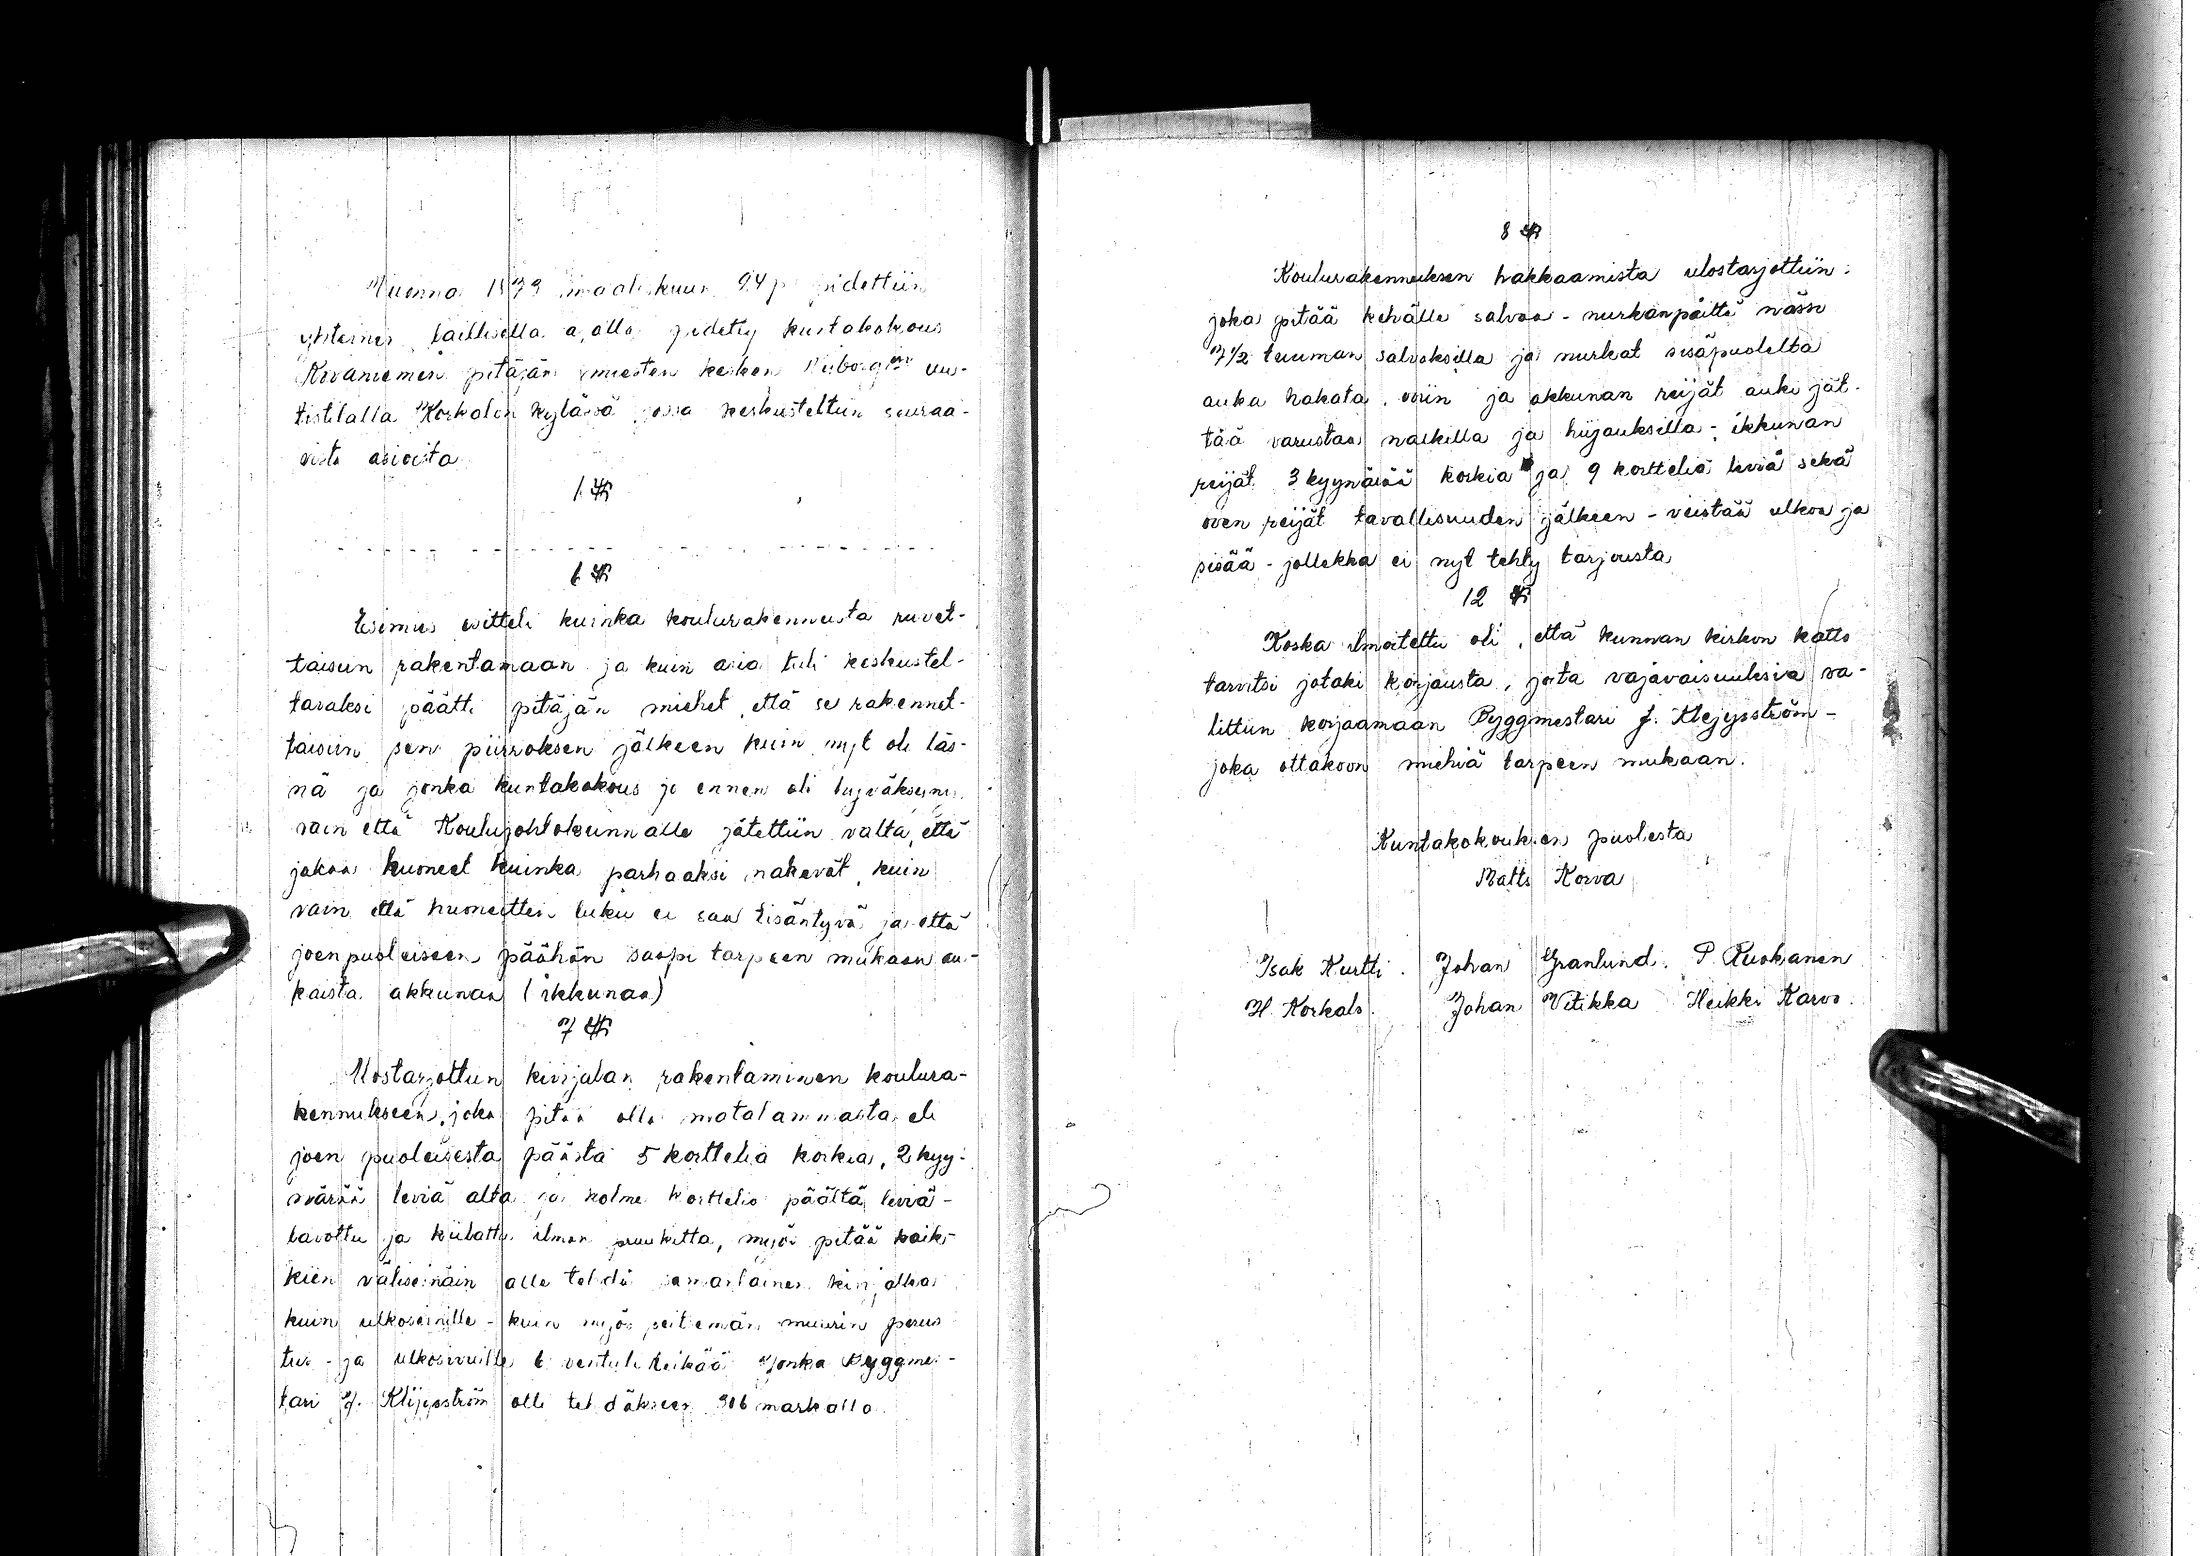 Vuonna 1879 maaliskuun 24 p pidettiin
yhteinen laillisella ajalla pidetty kuntakokous
Rovaniemen pitäjän miesten kesken uu-
tistilalla Korkalon kylässä jossa keskusteltiin seuraa-
vista asioista
1 §
- - - - - - - - - - - - - - - - - -
6 §
Esimies esitteli kuinka koulurakennusta ruvet-
taisiin rakentamaan ja kuin asia tuli keskustel-
tavaksi päätti pitäjän miehet, että se rakennet-
taisiin sen piirroksen jälkeen kuin nyt oli läs-
nä ja jonka kuntakokous jo ennen oli hyväksynyt
vain että Koulujohtokunnalle jätettiin valta, että
jakaa huoneet kuinka parhaaksi nakevät, kuin
vain että huoneitten luku ei saa lisäntyvä ja että
joenpuoleiseen päähän saapi tarpeen mukaan au-
kaista akkunaa (ikkunaa)
7 §
Ulostarjottiin kivijalan rakentaminen koulura-
kennukseen, joka pitää olla matalammasta eli
joen puoleisesta päästä 5 korttelia korkia, 2 kyy-
närää leviä alta ja kolme korttelia päältä leviä -
ladottu ja kiilattu ilman pruukitta, myös pitää kaik-
kien väliseinäin alle tehdä samanlainen kivijalka
kuin ulkoseinille - kuin myös muurin perus
tus - ja ulkosivuille 6 reikää Jonka Byggmes-
tari J. Klijysström otti tehdäkseen 306 markalla.
8 §
Koulurakennuksen hakkaamista ulostarjottiin:
joka pitää kehälle salvaa - nurkanpäittä
7 1/2 tuuman salvoksilla ja nurkat sisäpuolelta
auka hakata, ovin ja akkunan reijät auki jät-
tää varustaa nalkilla ja hiijauksilla - ikkunan
reijät 3 kyynärää korkia ja 9 korttelia leviä sekä
oven reijät tavallisuuden jälkeen - veistää ulkoa ja
sisää - jollekka ei nyt tehty tarjousta
12 §
Koska ilmoitettu oli, että kunnan kirkon katto
tarvitsi jotaki korjausta, joita vajavaisuuksia va-
littiin korjaamaan Byggmestari J. Klejysström -
joka ottakoon miehiä tarpeen mukaan.
Kuntakokouksen puolesta
Matts Korva
Isak Kurtti. Johan Granlund. P. Ruokanen
H. Korkalo. Johan Vitikka Heikki Karvo.